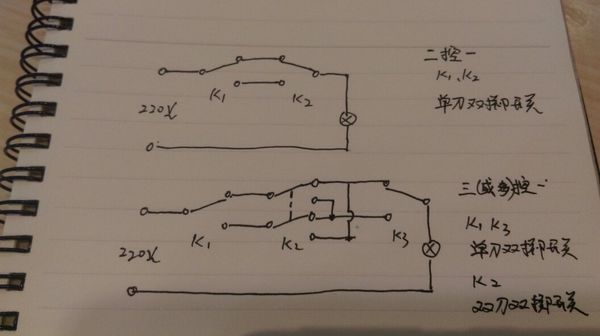 二控一
K₁、K₂
220V
K₁
K₂
单刀双掷开关
三(或多)控一
K₁ K₃
220V
K₁
K₂
K₃
单刀双掷开关
K₂
双刀双掷开关